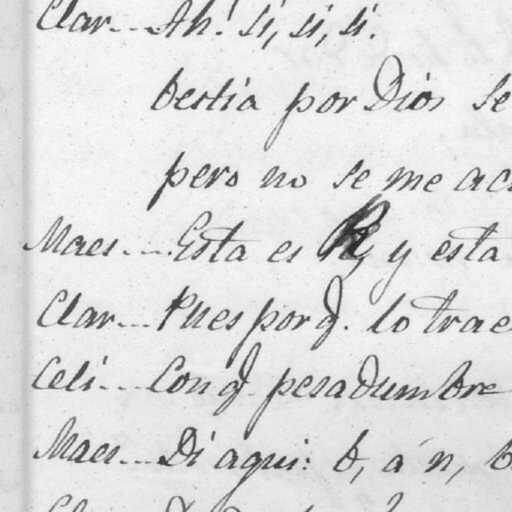 Clar... Ah! si, si, si.
bestia por Dios se
pero no se me
Maes... Esta es R, y esta
Clar... Pues por q. lo
Celi... Con q pesadumbre
Maes... Di aqui: b, á n,